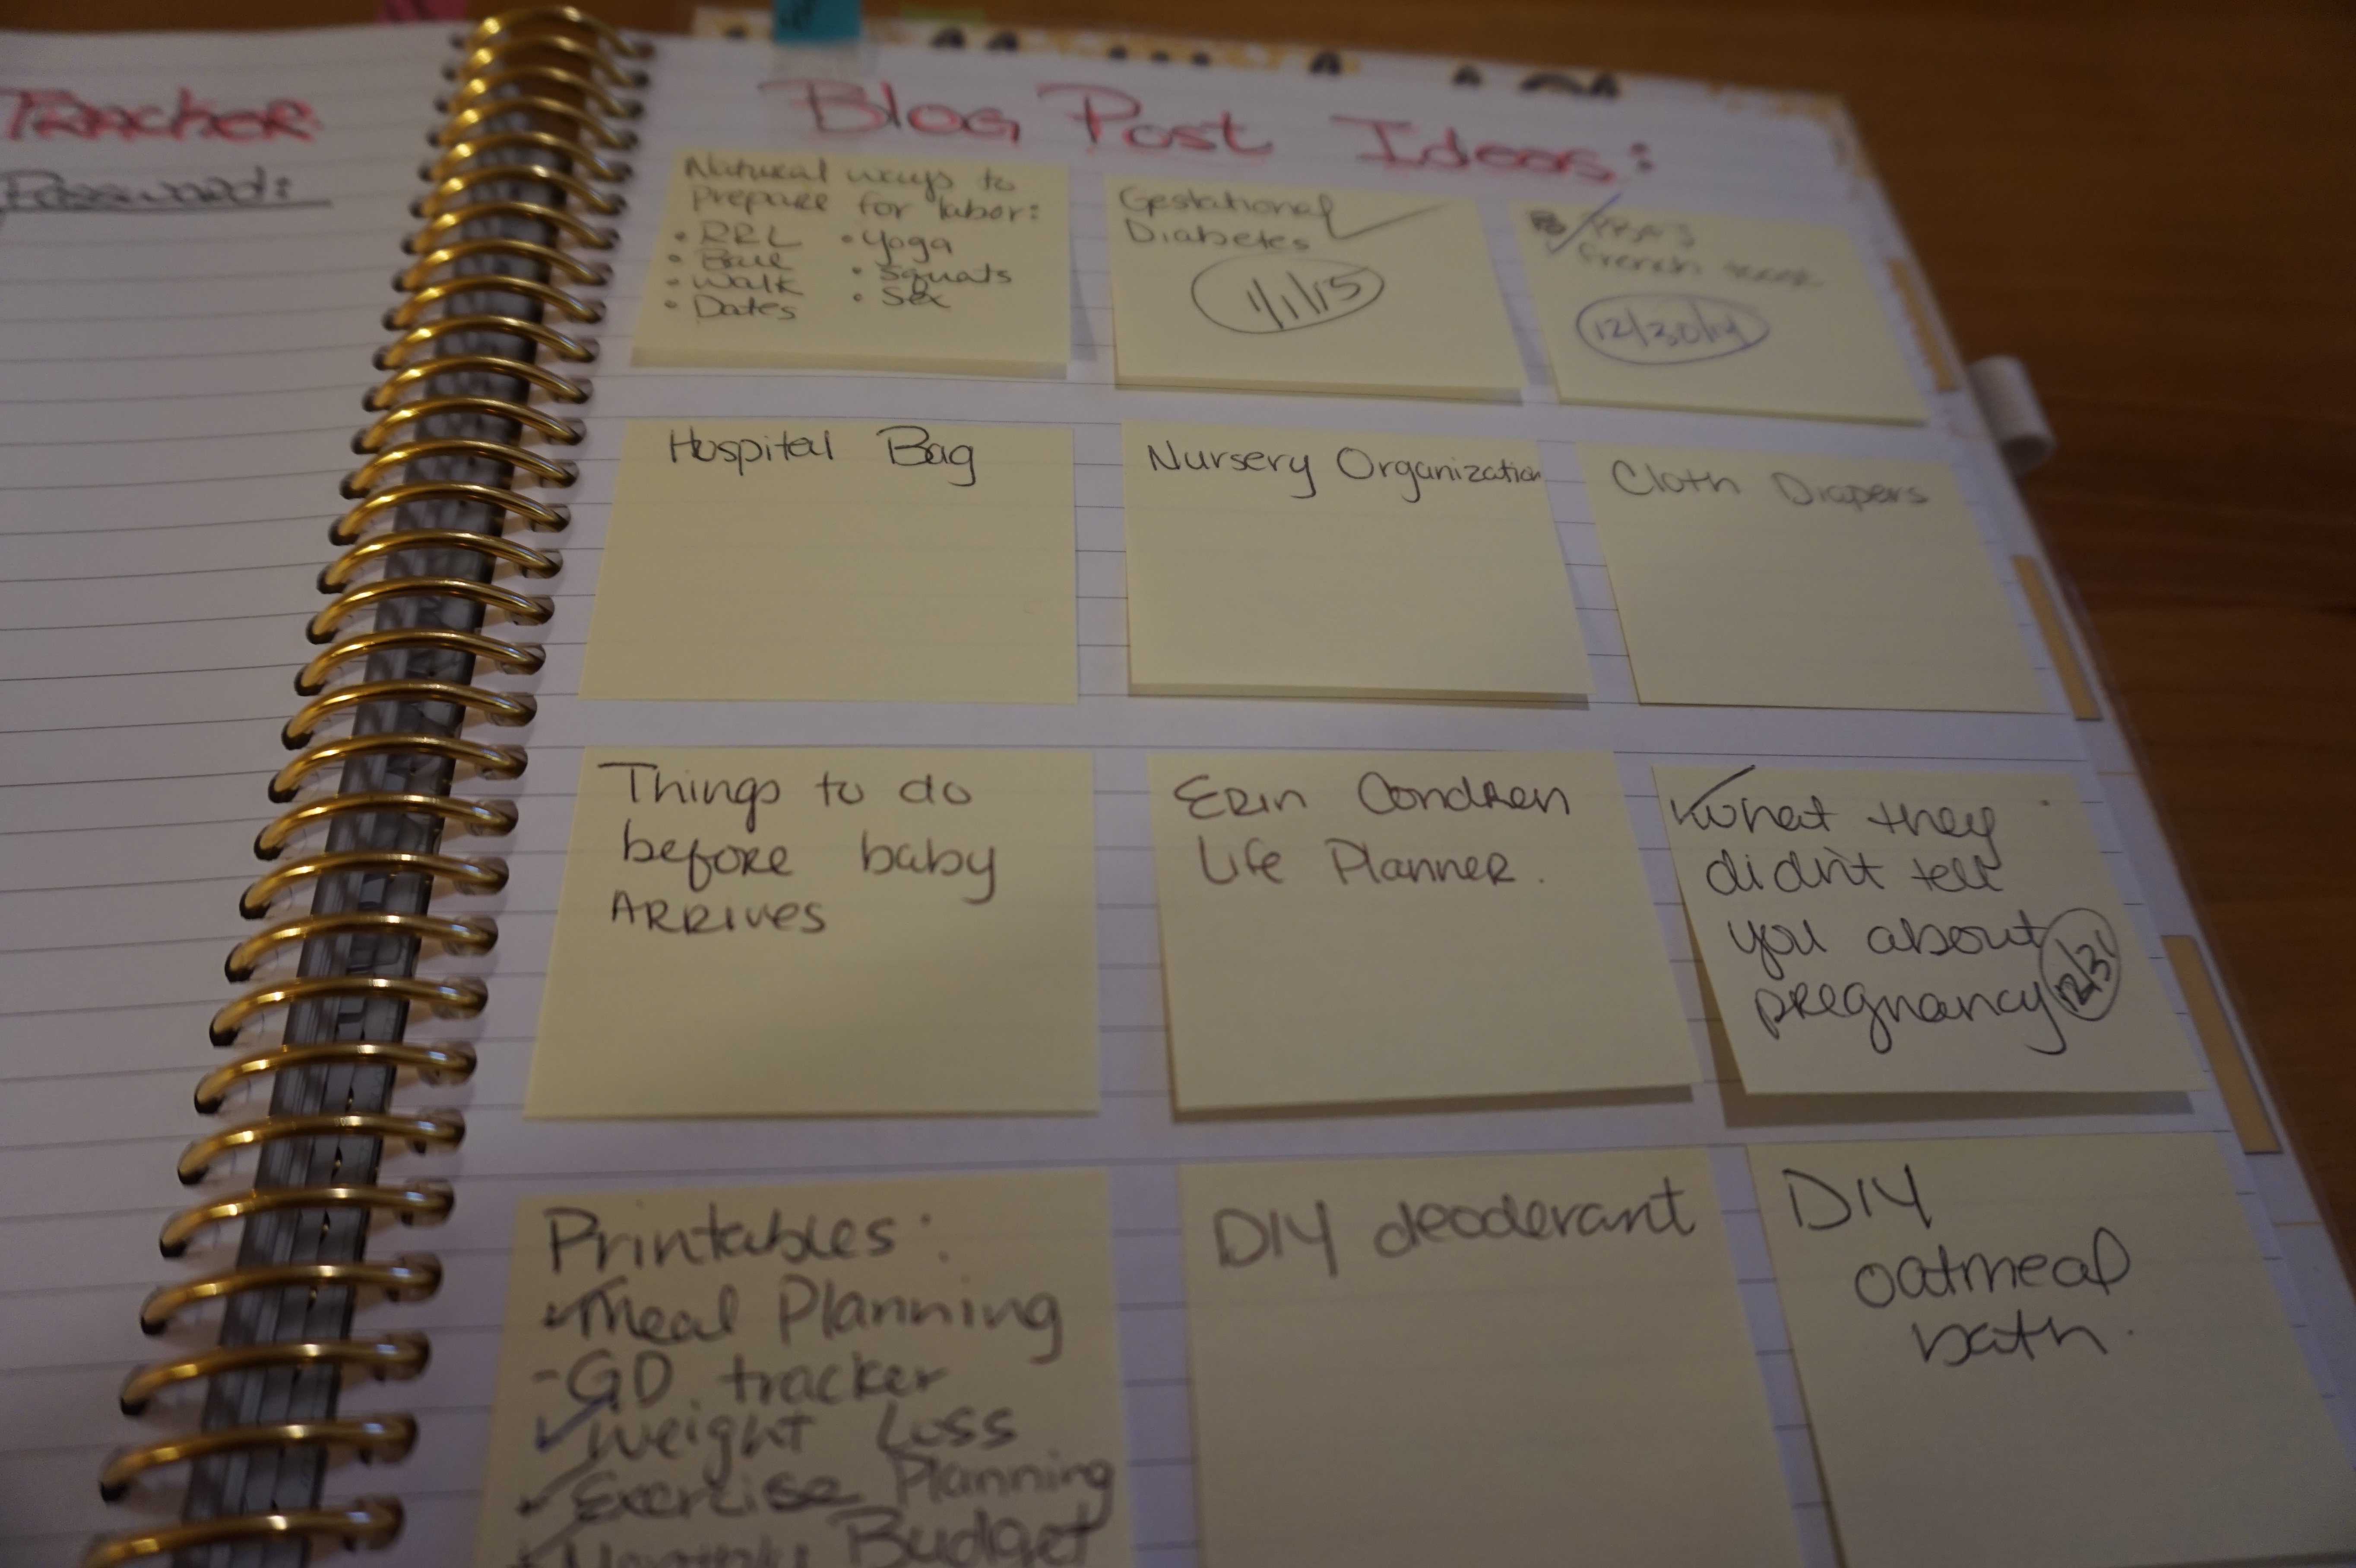 Tracker
Password:
Blog Post Ideas:
Natural ways to
prepare for labor:
• RRL
• Ball
• Walk
• Dates
• Yoga
• Squats
• Sex
Gestational
Diabetes
1/1/15
12/30/14
Hospital Bag
Nursery Organization
Cloth Diapers
Things to do
before baby
ARRIVES
Erin Condren
Life Planner.
What they
didn't tell
you about
pregnancy
12/31
Printables:
Meal Planning
- GD tracker
Weight Loss
Exercise Planning
Monthly Budget
DIY deoderant
DIY
oatmeal
bath.